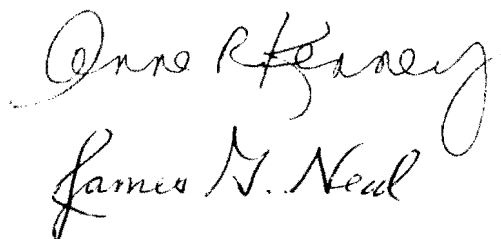 Anne R Kenney
James G. Neal